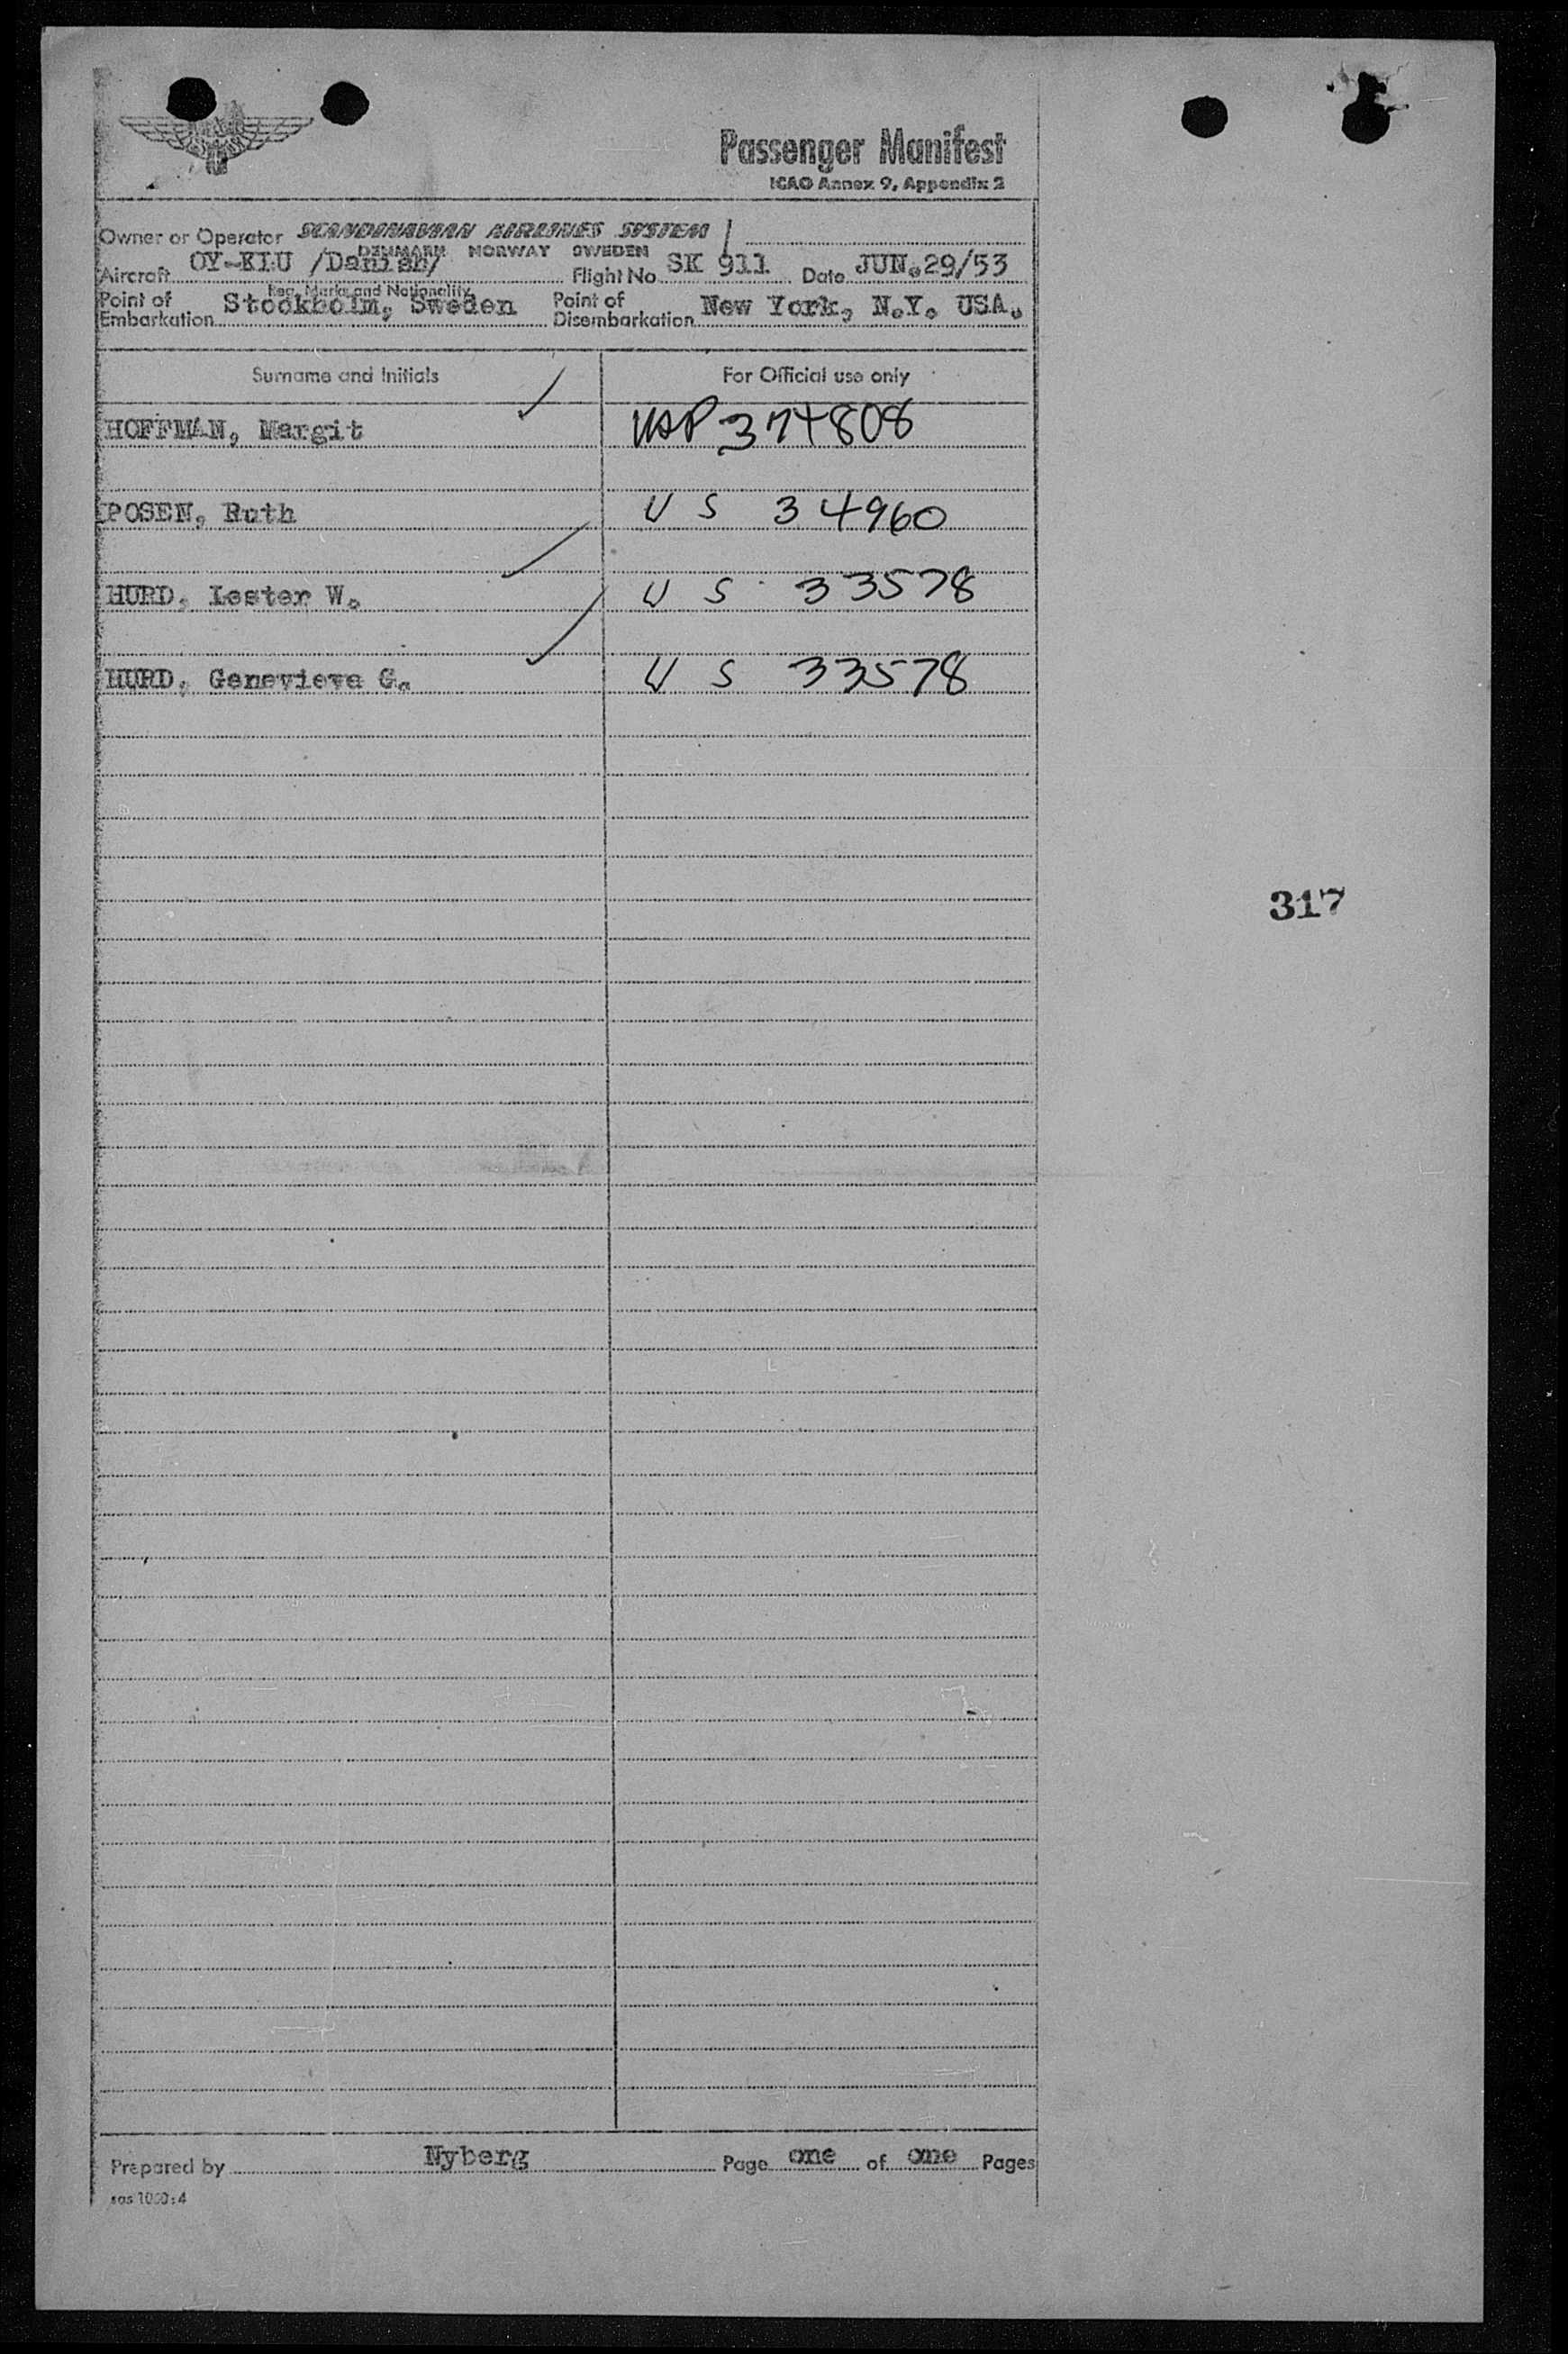 Passenger Manifest
ICAO Annex 9, Appendix 2
Owner or Operator SCANDINAVIAN AIRLINES SYSTEM
DENMARK NORWAY SWEDEN
Aircraft OY-KLU /Danish/ Flight No SK 911 Date JUN.29/53
Reg. Marks and Nationality
Point of Embarkation Stockholm, Sweden Point of Disembarkation New York, N.Y. USA.
Surname and Initials For Official use only
HOFFMAN, Margit 374808
POSEN, Ruth U S 34960
HURD, Lester W. U S 33578
HURD, Genevieve G. U S 33578
317
Prepared by Nyberg Page one of one Pages